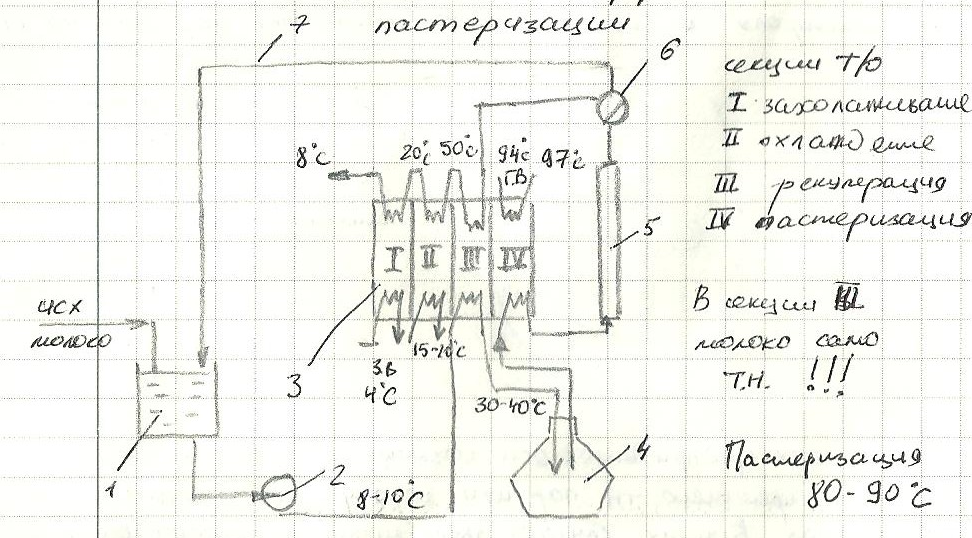 пастеризации
7
6
секции Т/О
I захолаживание
II охлаждение
III рекуперация
IV пастеризация
8°С
20°С
50°С
94°С
Г.В
97°С
I
II
III
IV
5
исх
молоко
3
З.В
4°С
15-20°С
В секции III
молоко само
Т.Н. !!!
30-40°С
4
1
2
8-10°С
Пастеризация
80-90°С